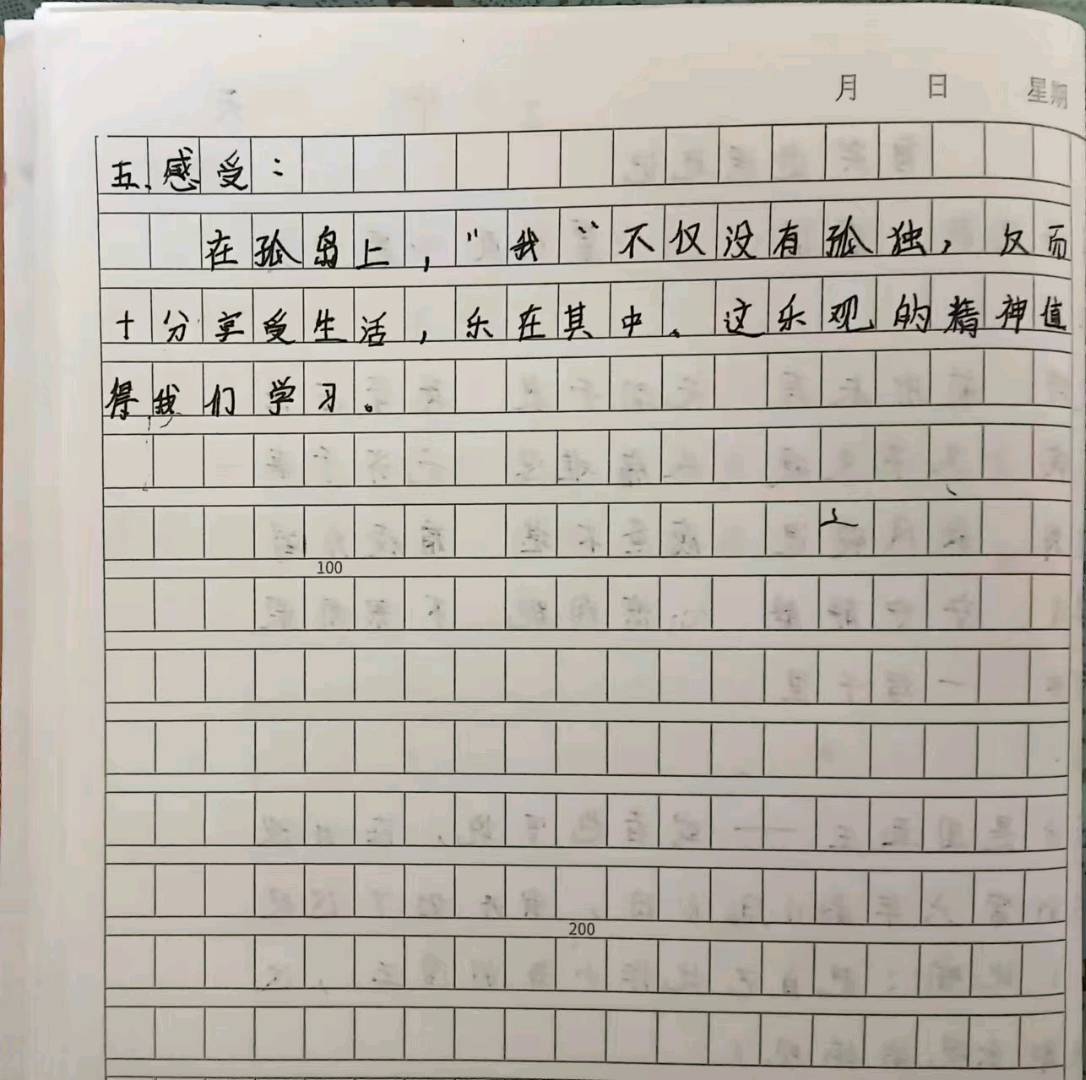 月 日 星期
五、感受：
在孤岛上，“我”不仅没有孤独，反而
十分享受生活，乐在其中。这乐观的精神值
得我们学习。
100
200